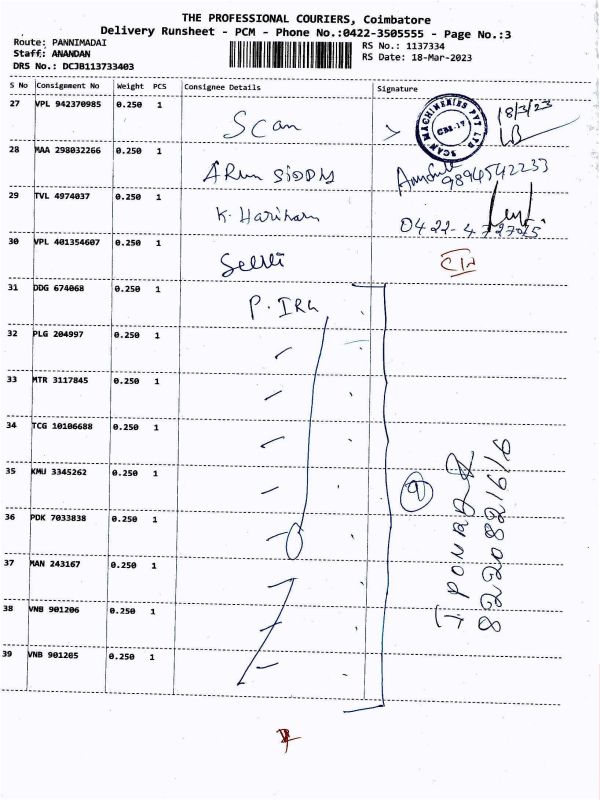 THE PROFESSIONAL COURIERS, Coimbatore
Delivery Runsheet - PCM - Phone No.:0422-3505555 - Page No.:3
Route: PANNIMADAI
Staff: ANANDAN
DRS No.: DCJB113733403
RS No.: 1137334
RS Date: 18-Mar-2023
S No Consignment No Weight PCS Consignee Details Signature
27 VPL 942370985 0.250 1 Scan 18/3/23
SCAN MACHINERIES PVT LTD
28 MAA 298032266 0.250 1 ARun 9894542233
29 TVL 4974037 0.250 1 K. Hariharn 0422-4727015
30 VPL 401354607 0.250 1 Selvi
31 DDG 674068 0.250 1 P. IRL
32 PLG 204997 0.250 1
33 MTR 3117845 0.250 1
34 TCG 10106688 0.250 1
35 KMU 3345262 0.250 1 9
36 PDK 7033838 0.250 1
37 MAN 243167 0.250 1
38 VNB 901206 0.250 1
39 VNB 901205 0.250 1
8220821616